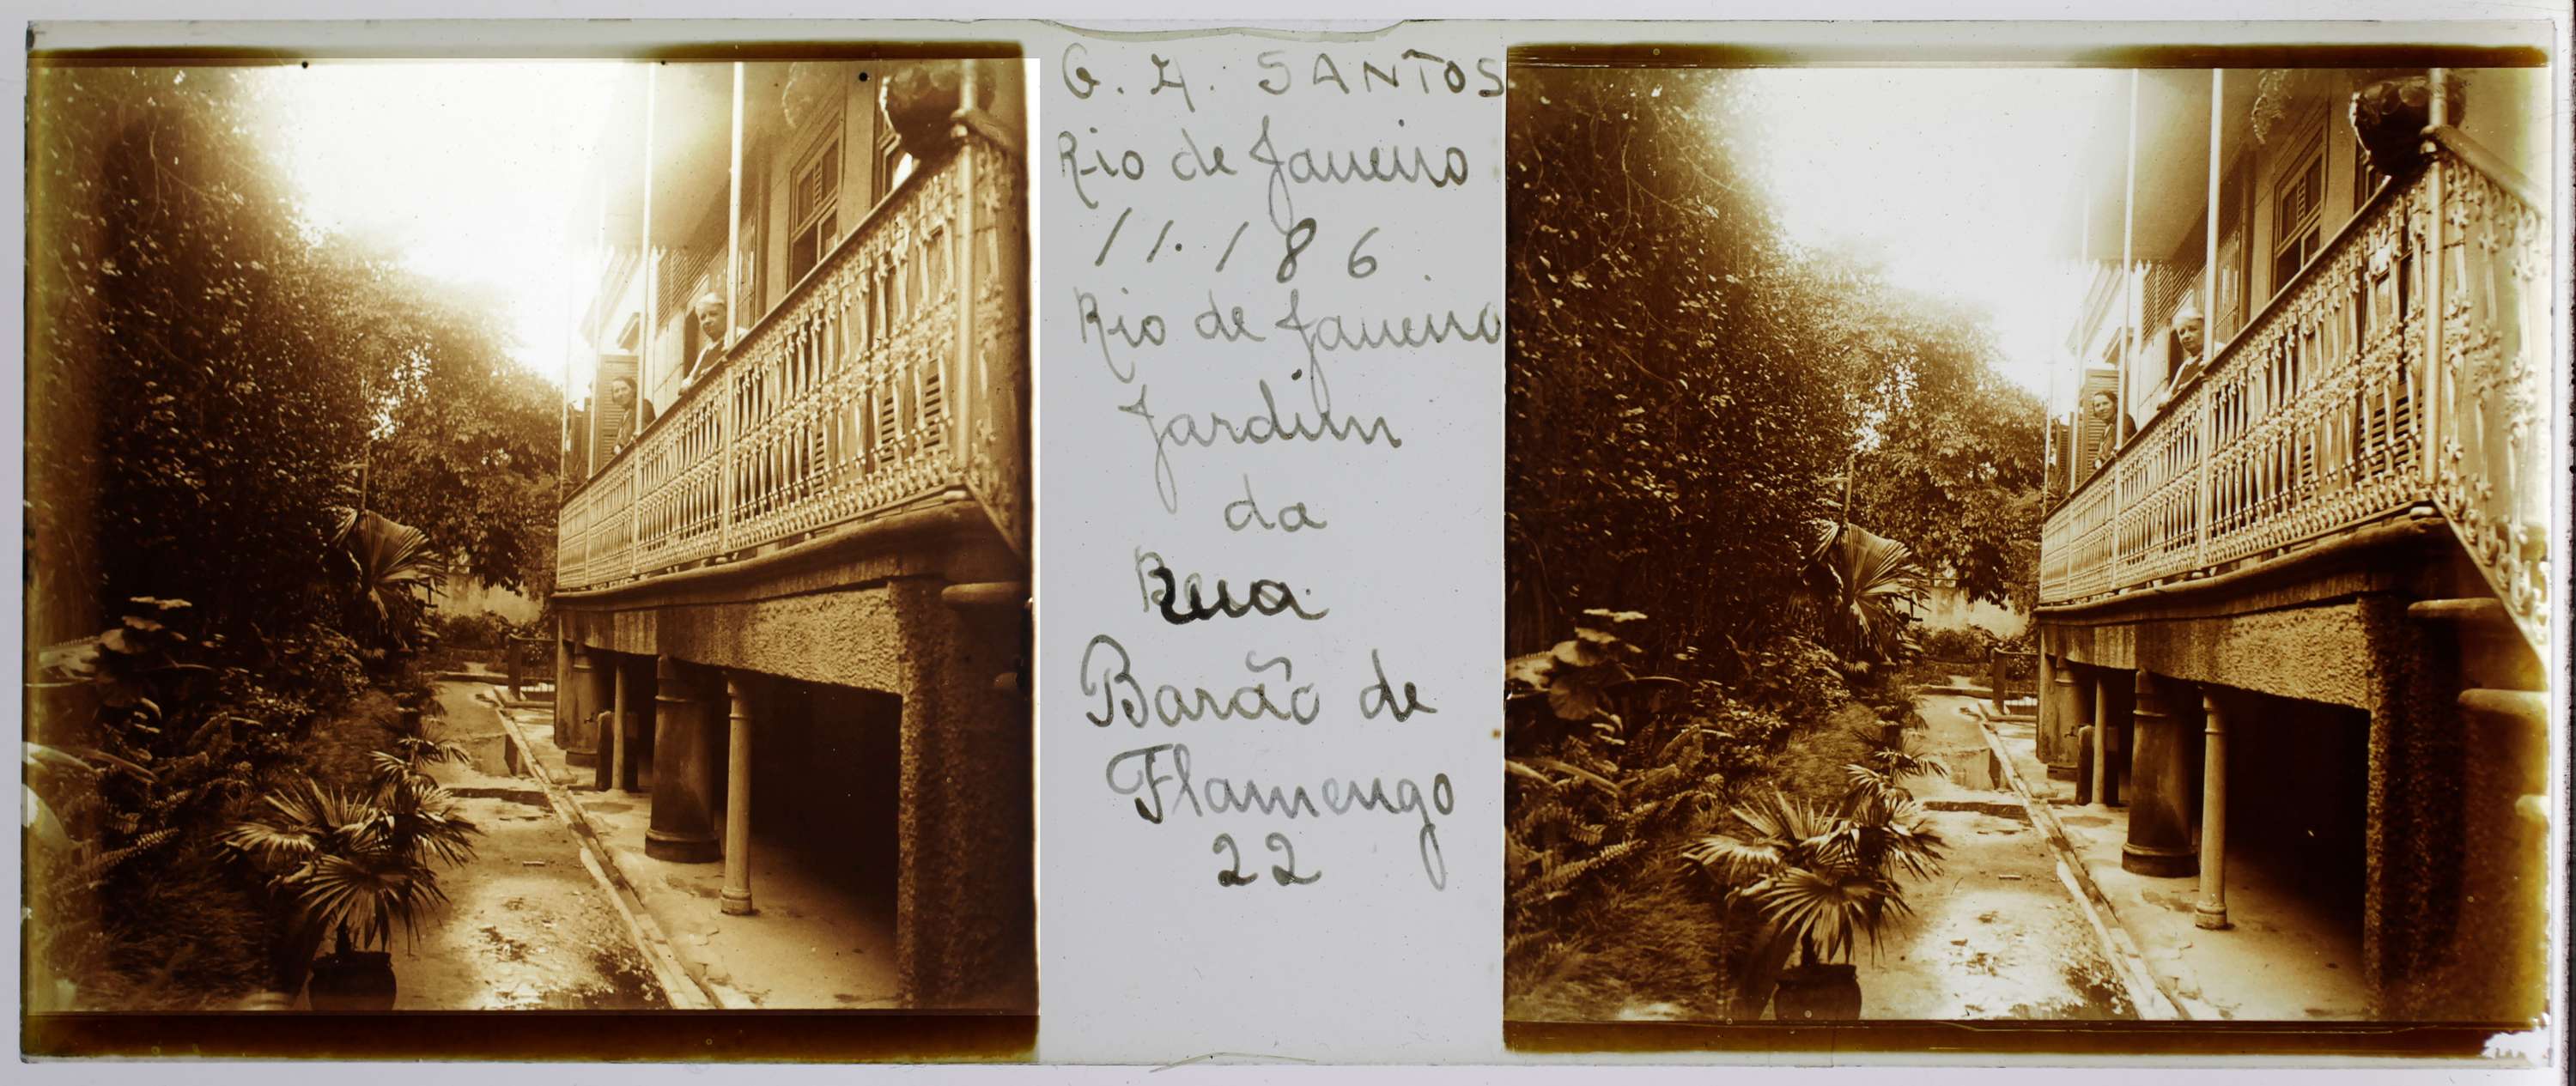 G. A. SANTOS
Rio de Janeiro
11.186
Rio de Janeiro
Jardim
da
Rua
Barão de
Flamengo
22